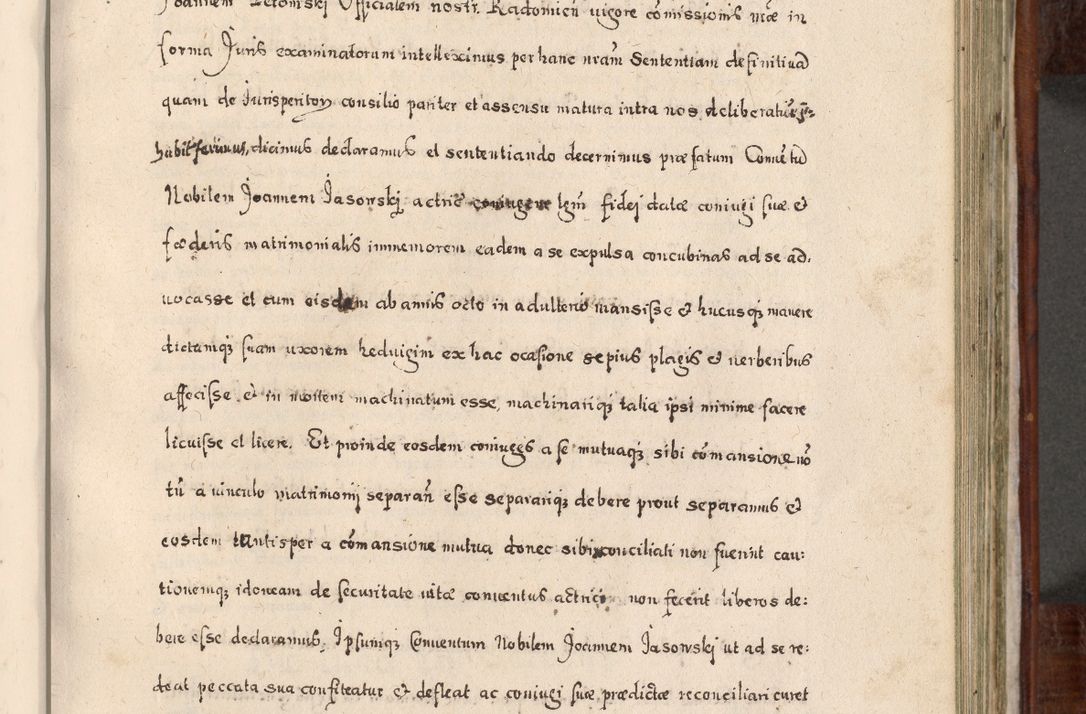 Joannem Petowski Officialem nostr. Radomien vigore comissionis nræ in
forma Juris examinatorum intelleximus per hanc nram Sententiam definitiva
quam de Jurisperitor consilio pariter et assensu matura intra nos deliberatione
habit ferimus, dicimus declaramus et sententiando decernimus præfatum Conuetu
Nobilem Joannem Jasowski actric coniugem lgm fidej datæ coniugi suæ et
fœderis matrimonialis inmemorem eadem a se expulsa concubinas ad se ad,
uocasse et cum eisdem ab annis octo in adulterio mansisse et hucusq manere
dictamq suam uxorem heduigim ex hac ocasione sepius plagis et uerberibus
affecisse et in mortem machinatum esse, machinariq talia ipsi minime facere
licuisse et licere. Et proinde eosdem coniuges a se mutuaq sibi comansione no
tu a uinculo matrimonij separan esse separariq debere prout separamus et
eosdem tantisper a comansione mutua donec sibi reconciliati non fuerint cau:
tionemq idoneam de securitate uitæ conuentus actrici non fecerit liberos de:
bere esse declaramus. Ipsumq Conuentum Nobilem Joannem Jasowskj ut ad se re:
deat peccata sua confiteatur et defleat ac coniugi suæ prædictæ reconciliari curet